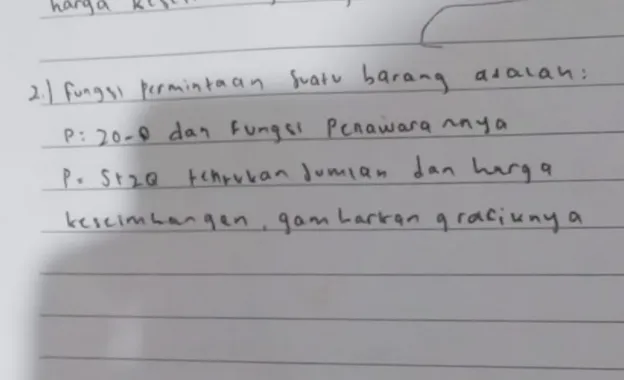 harga
2.) Fungsi permintaan suatu barang adalah:
P: 20-Q dan Fungsi Penawarannya
P = 5+2Q tentukan Jumlah dan harga
keseimbangan, gambarkan grafiknya